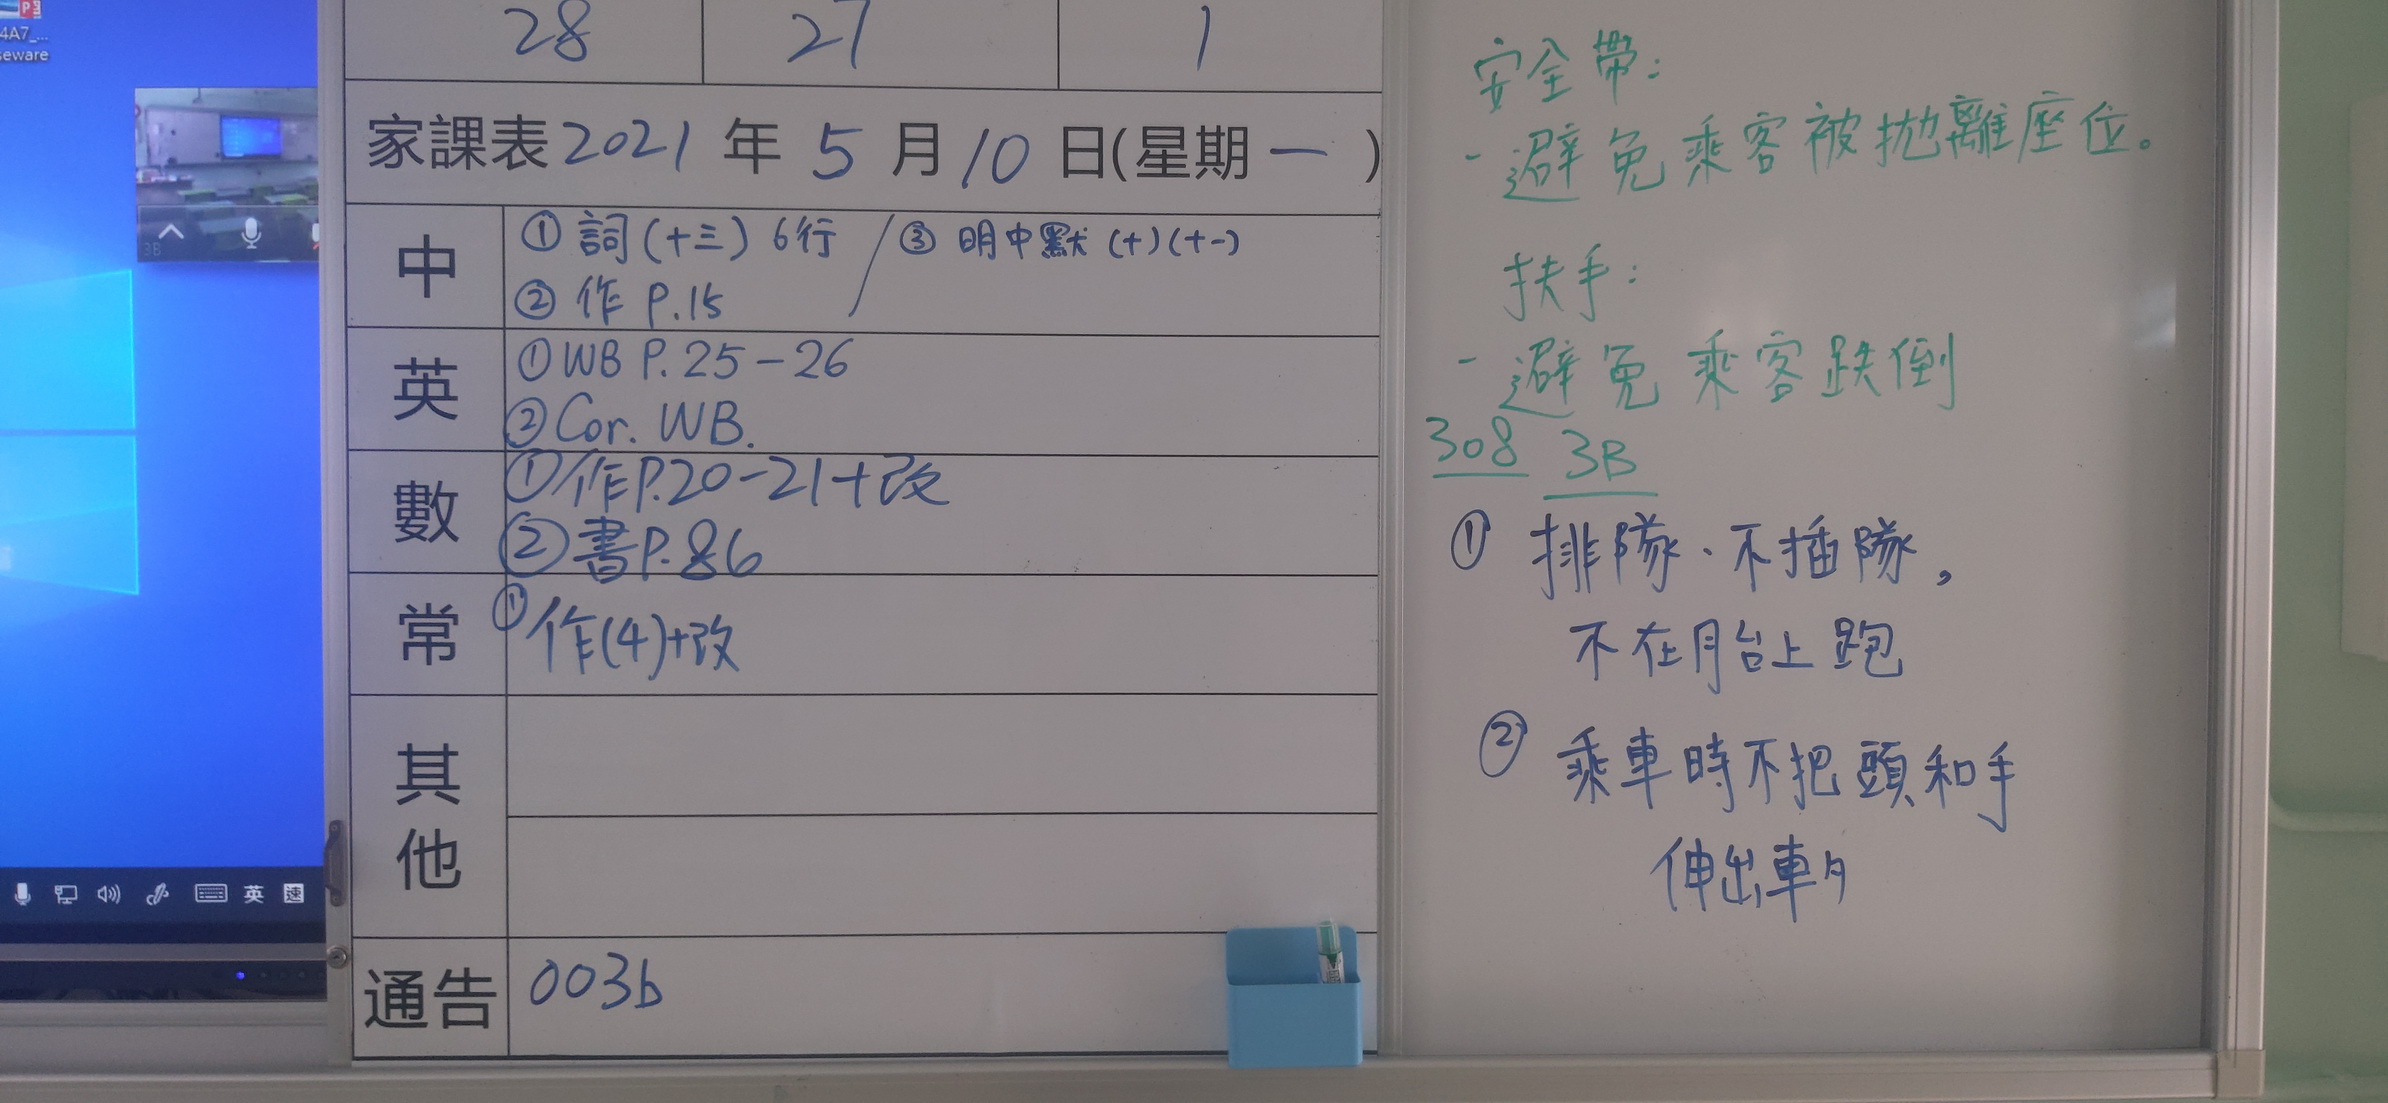 4A7_...
seware
3B
英 速
28 27 1
家課表2021年5月10日(星期一)
中 ①詞(十三)6行/③明中默(十)(十一)
②作P.15
英 ①WB P.25-26
②Cor. WB.
數 ①作P.20-21+改
②書P.86
常 ①作(4)+改
其他
通告 003b
安全帶:
-避免乘客被拋離座位。
扶手:
-避免乘客跌倒
308 3B
①排隊、不插隊,
不在月台上跑
②乘車時不把頭和手
伸出車